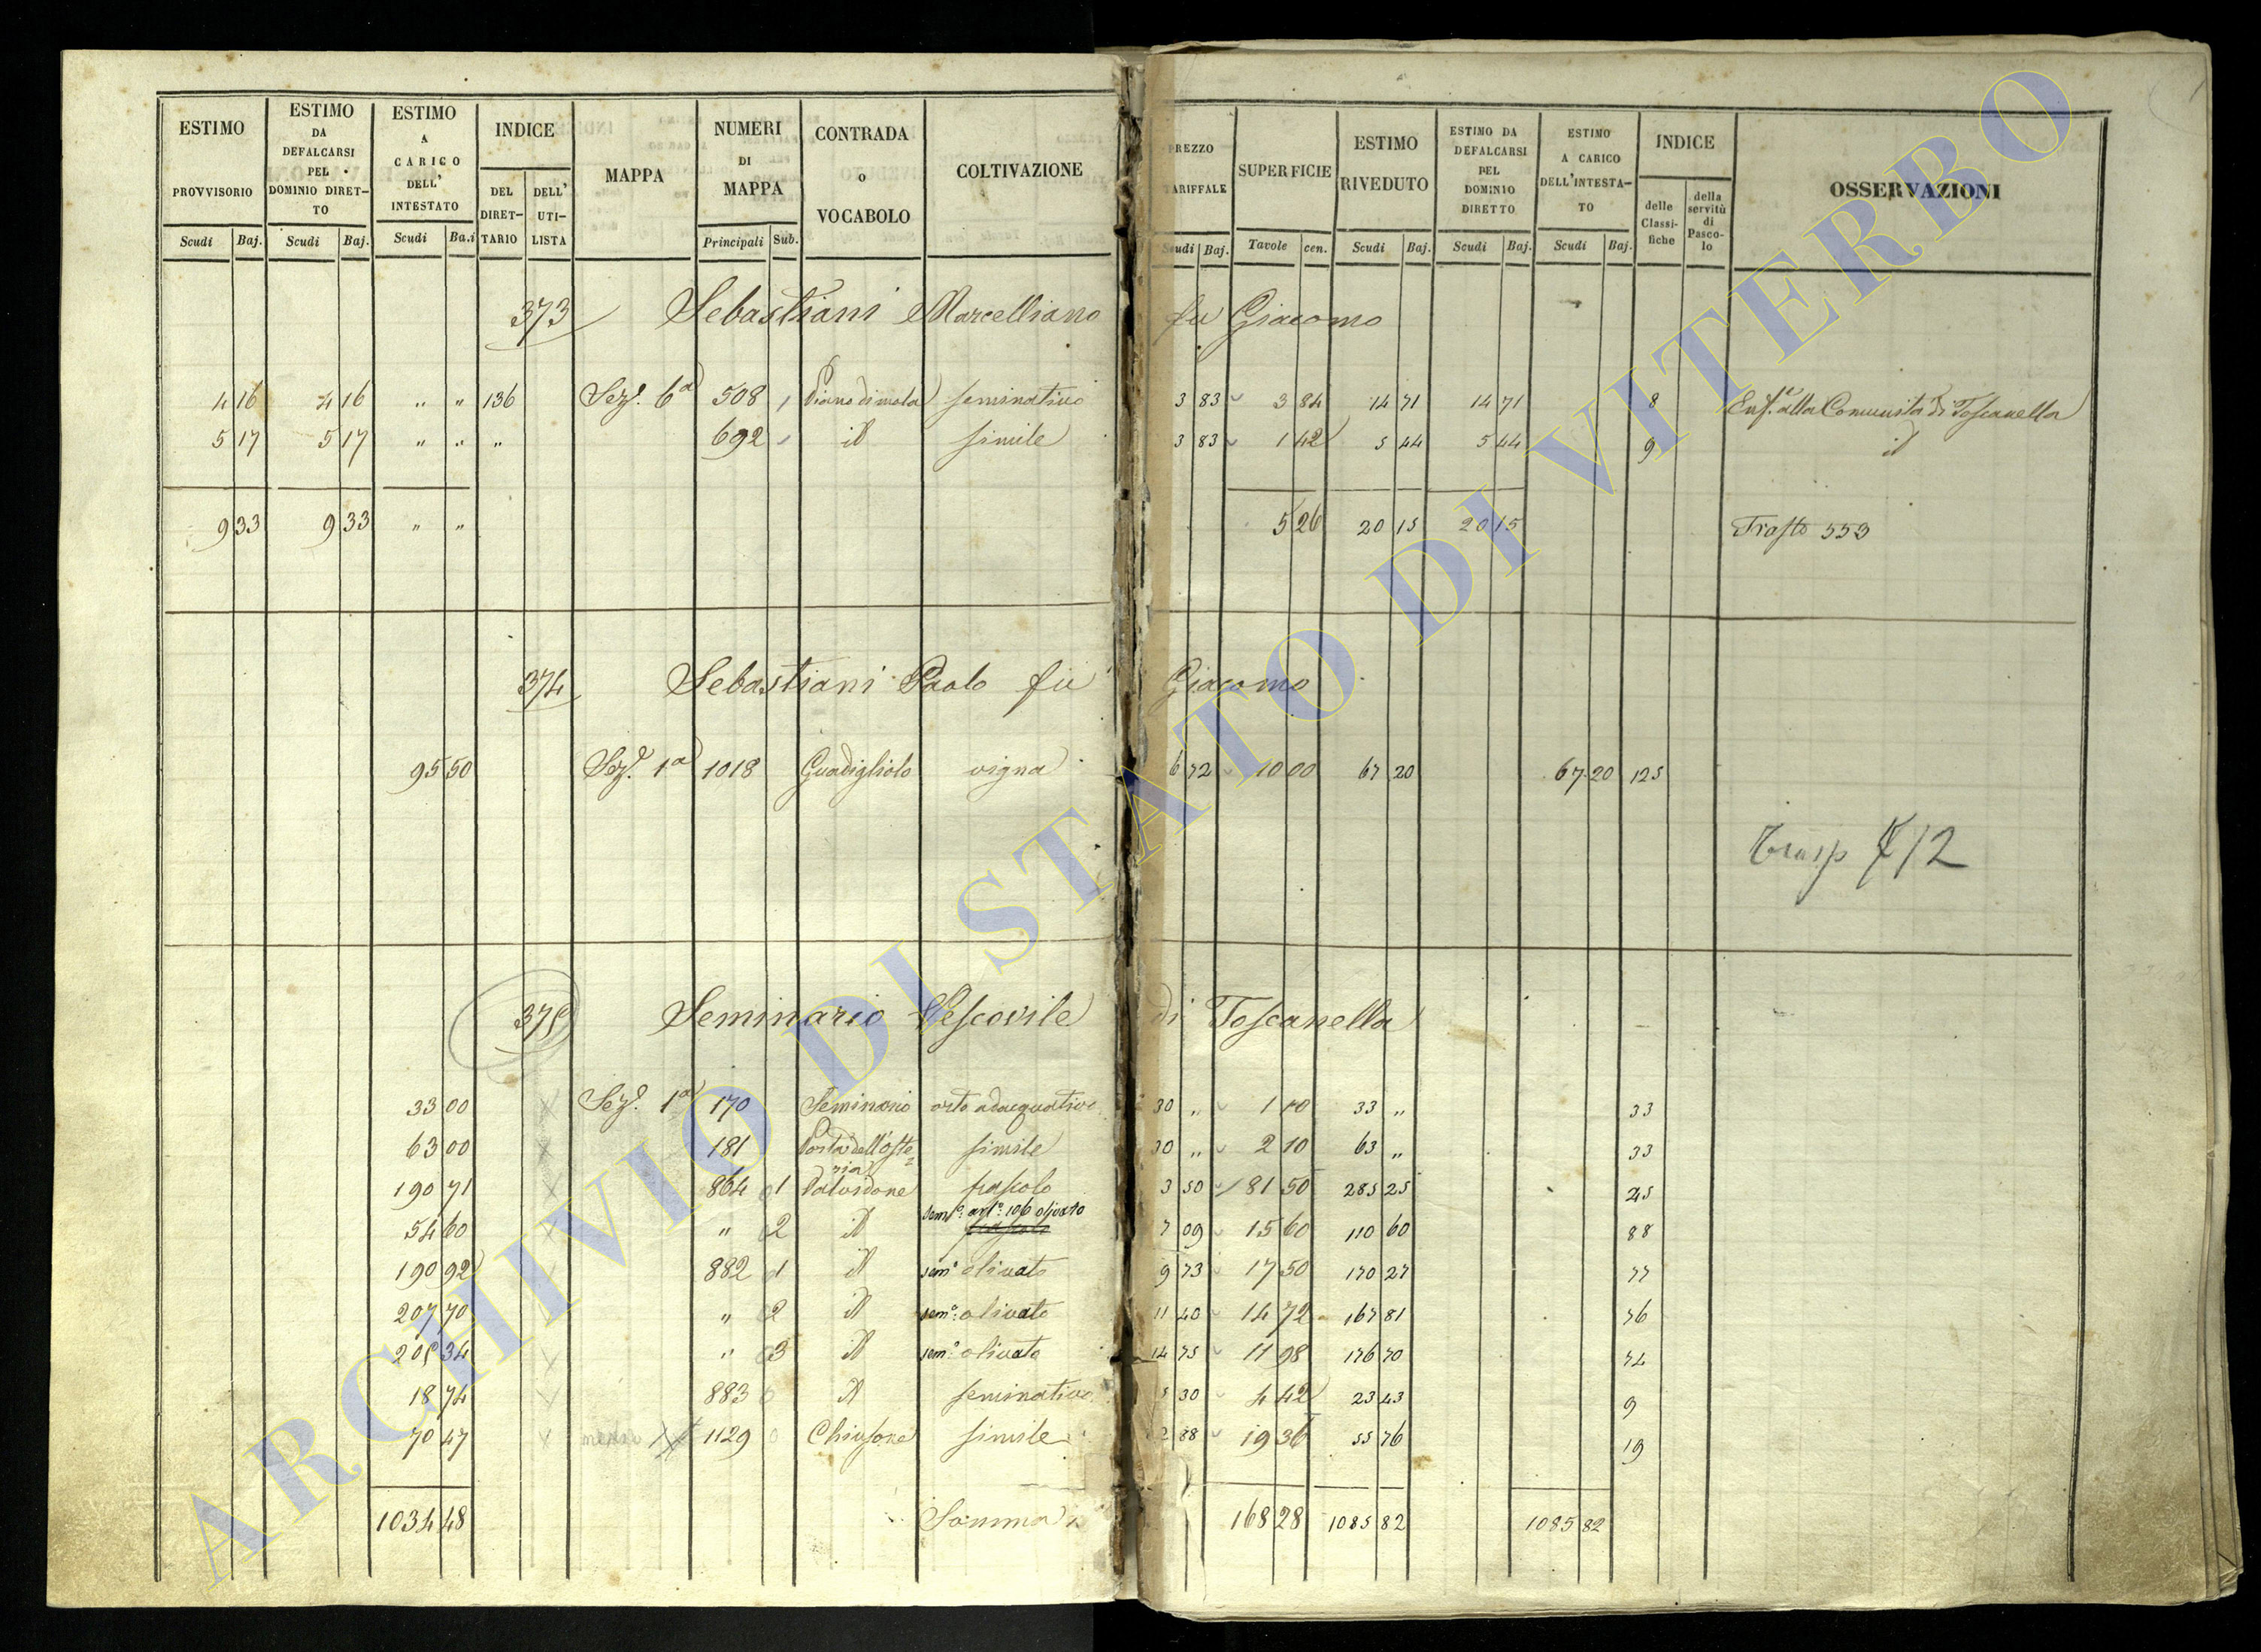 ESTIMO PROVVISORIO Scudi Baj. ESTIMO DA DEFALCARSI PEL DOMINIO DIRET-TO Scudi Baj. ESTIMO A CARICO DELL' INTESTATO Scudi Ba.i INDICE DEL DIRET-TARIO DELL' UTI-LISTA MAPPA NUMERI DI MAPPA Principali Sub. CONTRADA o VOCABOLO COLTIVAZIONE PREZZO TARIFFALE Scudi Baj. SUPERFICIE Tavole cen. ESTIMO RIVEDUTO Scudi Baj. ESTIMO DA DEFALCARSI PEL DOMINIO DIRETTO Scudi Baj. ESTIMO A CARICO DELL'INTESTA-TO Scudi Baj. INDICE delle Classi-fiche della servitù di Pasco-lo OSSERVAZIONI
373 Sebastiani Marcelliano fu Giacomo
4 16 4 16 " " 136 Sez.e 6a 508 Piano di mola seminativo 3 83 3 84 14 71 14 71 8 Enf.a alla Comunità di Toscanella
5 17 5 17 " " " 692 id simile 3 83 1 42 5 44 5 44 9 id
9 33 9 33 " " 5 26 20 15 20 15 Trasto 553
374 Sebastiani Paolo fu Giacomo
95 50 Sez.e 1a 1018 Guadigliolo vigna 6 72 10 00 67 20 67 20 125
Trasp 412
375 Seminario Vescovile di Toscanella
33 00 Sez.e 1a 170 Seminario orto adacquativo 30 " 1 10 33 " 33
63 00 181 Porta dell'Oste= simile 30 " 2 10 63 " 33
ria
190 71 864 1 Valvidone pascolo 3 50 81 50 285 25 45
54 60 " 2 id sem.o art.o 106 olivato pascolo 7 09 15 60 110 60 88
190 92 882 1 id sem.o olivato 9 73 17 50 170 27 77
207 70 " 2 id sem.o olivato 11 40 14 72 167 81 76
205 34 " 3 id sem.o olivato 14 75 11 98 176 70 74
18 74 883 id seminativo 5 30 4 42 23 43 9
70 47 1129 Chiusone simile 2 88 19 36 55 76 19
1034 48 Somma 168 28 1085 82 1085 82
ARCHIVIO DI STATO DI VITERBO